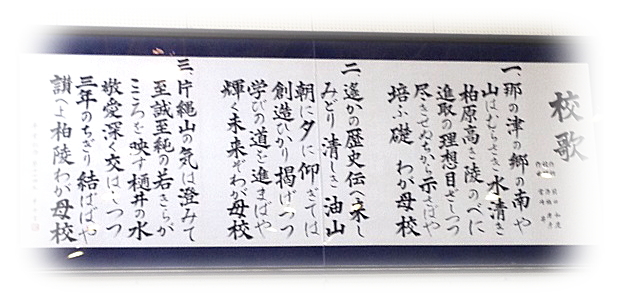 校歌
一、那の津の郷の南や
山はむらさき水清き
柏原高き陵のべに
進取の理想目ざしつつ
尽きせぬちから示さばや
培ふ礎 わが母校
二、遙かの歴史伝へ来し
みどり清しき油山
朝に夕に仰ぎては
創造ひかり掲げつつ
学びの道を進まばや
輝く未来ぞわが母校
三、片縄山の気は澄みて
至誠至純の若きらが
こころを映す樋井の水
敬愛深く交はしつつ
三年のちぎり結ばばや
讃へよ柏陵わが母校